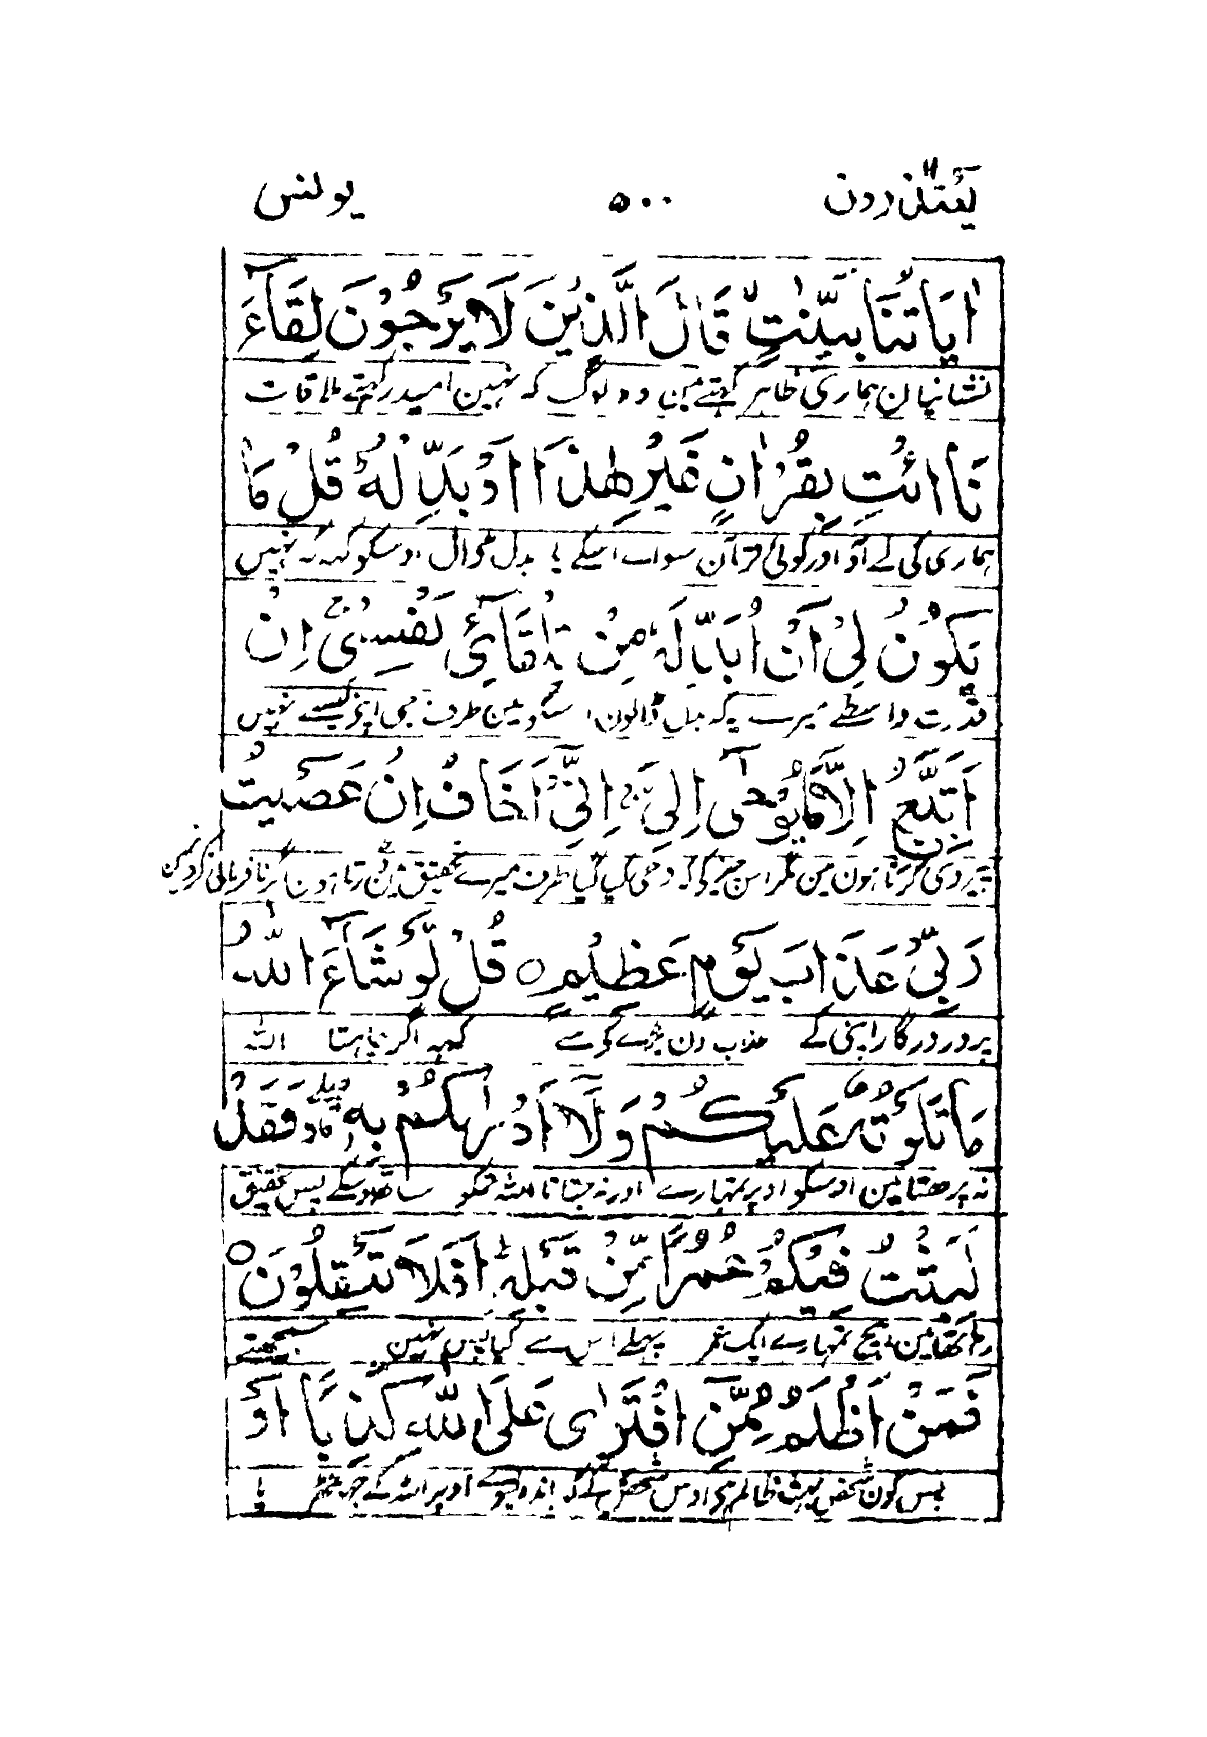 یعتذرون ۵۰۰ یونس
اٰیَاتُنَا بَیِّنٰتٍ قَالَ الَّذِیْنَ لَا یَرْجُوْنَ لِقَآءَ
نشانیان ہماری ظاہر کہتے ہین وہ لوگ کہ نہین امید رکہتے ملاقات
نَا ائْتِ بِقُرْاٰنٍ غَیْرِ هٰذَا اَوْ بَدِّلْهُ قُلْ مَا
ہماری کی لے آؤ اور کوئی قرآن سواے اسکے یا بدل ڈال اوسکو کہہ کہ نہین
یَكُوْنُ لِیْ اَنْ اُبَدِّلَهٗ مِنْ تِلْقَآئِ نَفْسِیْ اِنْ
قدرت واسطے میرے یہ کہ بدل ڈالون اسکو مین طرف جی اپنے سے نہین
اَتَّبِعُ اِلَّا مَا یُوْحٰۤی اِلَیَّ اِنِّیْۤ اَخَافُ اِنْ عَصَیْتُ
پیروی کرتا ہون مین مگر اس چیز کی کہ وحی کیا گیا طرف میرے تحقیق مین ڈرتا ہون اگر نافرمانی کرون مین
رَبِّیْ عَذَابَ یَوْمٍ عَظِیْمٍ ○ قُلْ لَّوْ شَآءَ اللّٰهُ
پروردگار اپنی کے عذاب دن بڑے کو سے کہہ اگر چاہتا اللہ
مَا تَلَوْتُهٗ عَلَیْكُمْ وَلَاۤ اَدْرٰىكُمْ بِهٖ فَقَدْ
نہ پڑھتا مین اوسکو اوپر تمہارے اور نہ جتاتا اللہ تمکو ساتھ اوسکے پس تحقیق
لَبِثْتُ فِیْكُمْ عُمُرًا مِّنْ قَبْلِهٖ اَفَلَا تَعْقِلُوْنَ ○
رہا تھا مین بیچ تمہارے ایک عمر پہلے اس سے کیا پس نہین سمجھتے
فَمَنْ اَظْلَمُ مِمَّنِ افْتَرٰى عَلَى اللّٰهِ كَذِبًا اَوْ
پس کون شخص بہت ظالم ہی اوس شخص سے کہ باندہ لیوے اوپر اللہ کے جھوٹھ یا